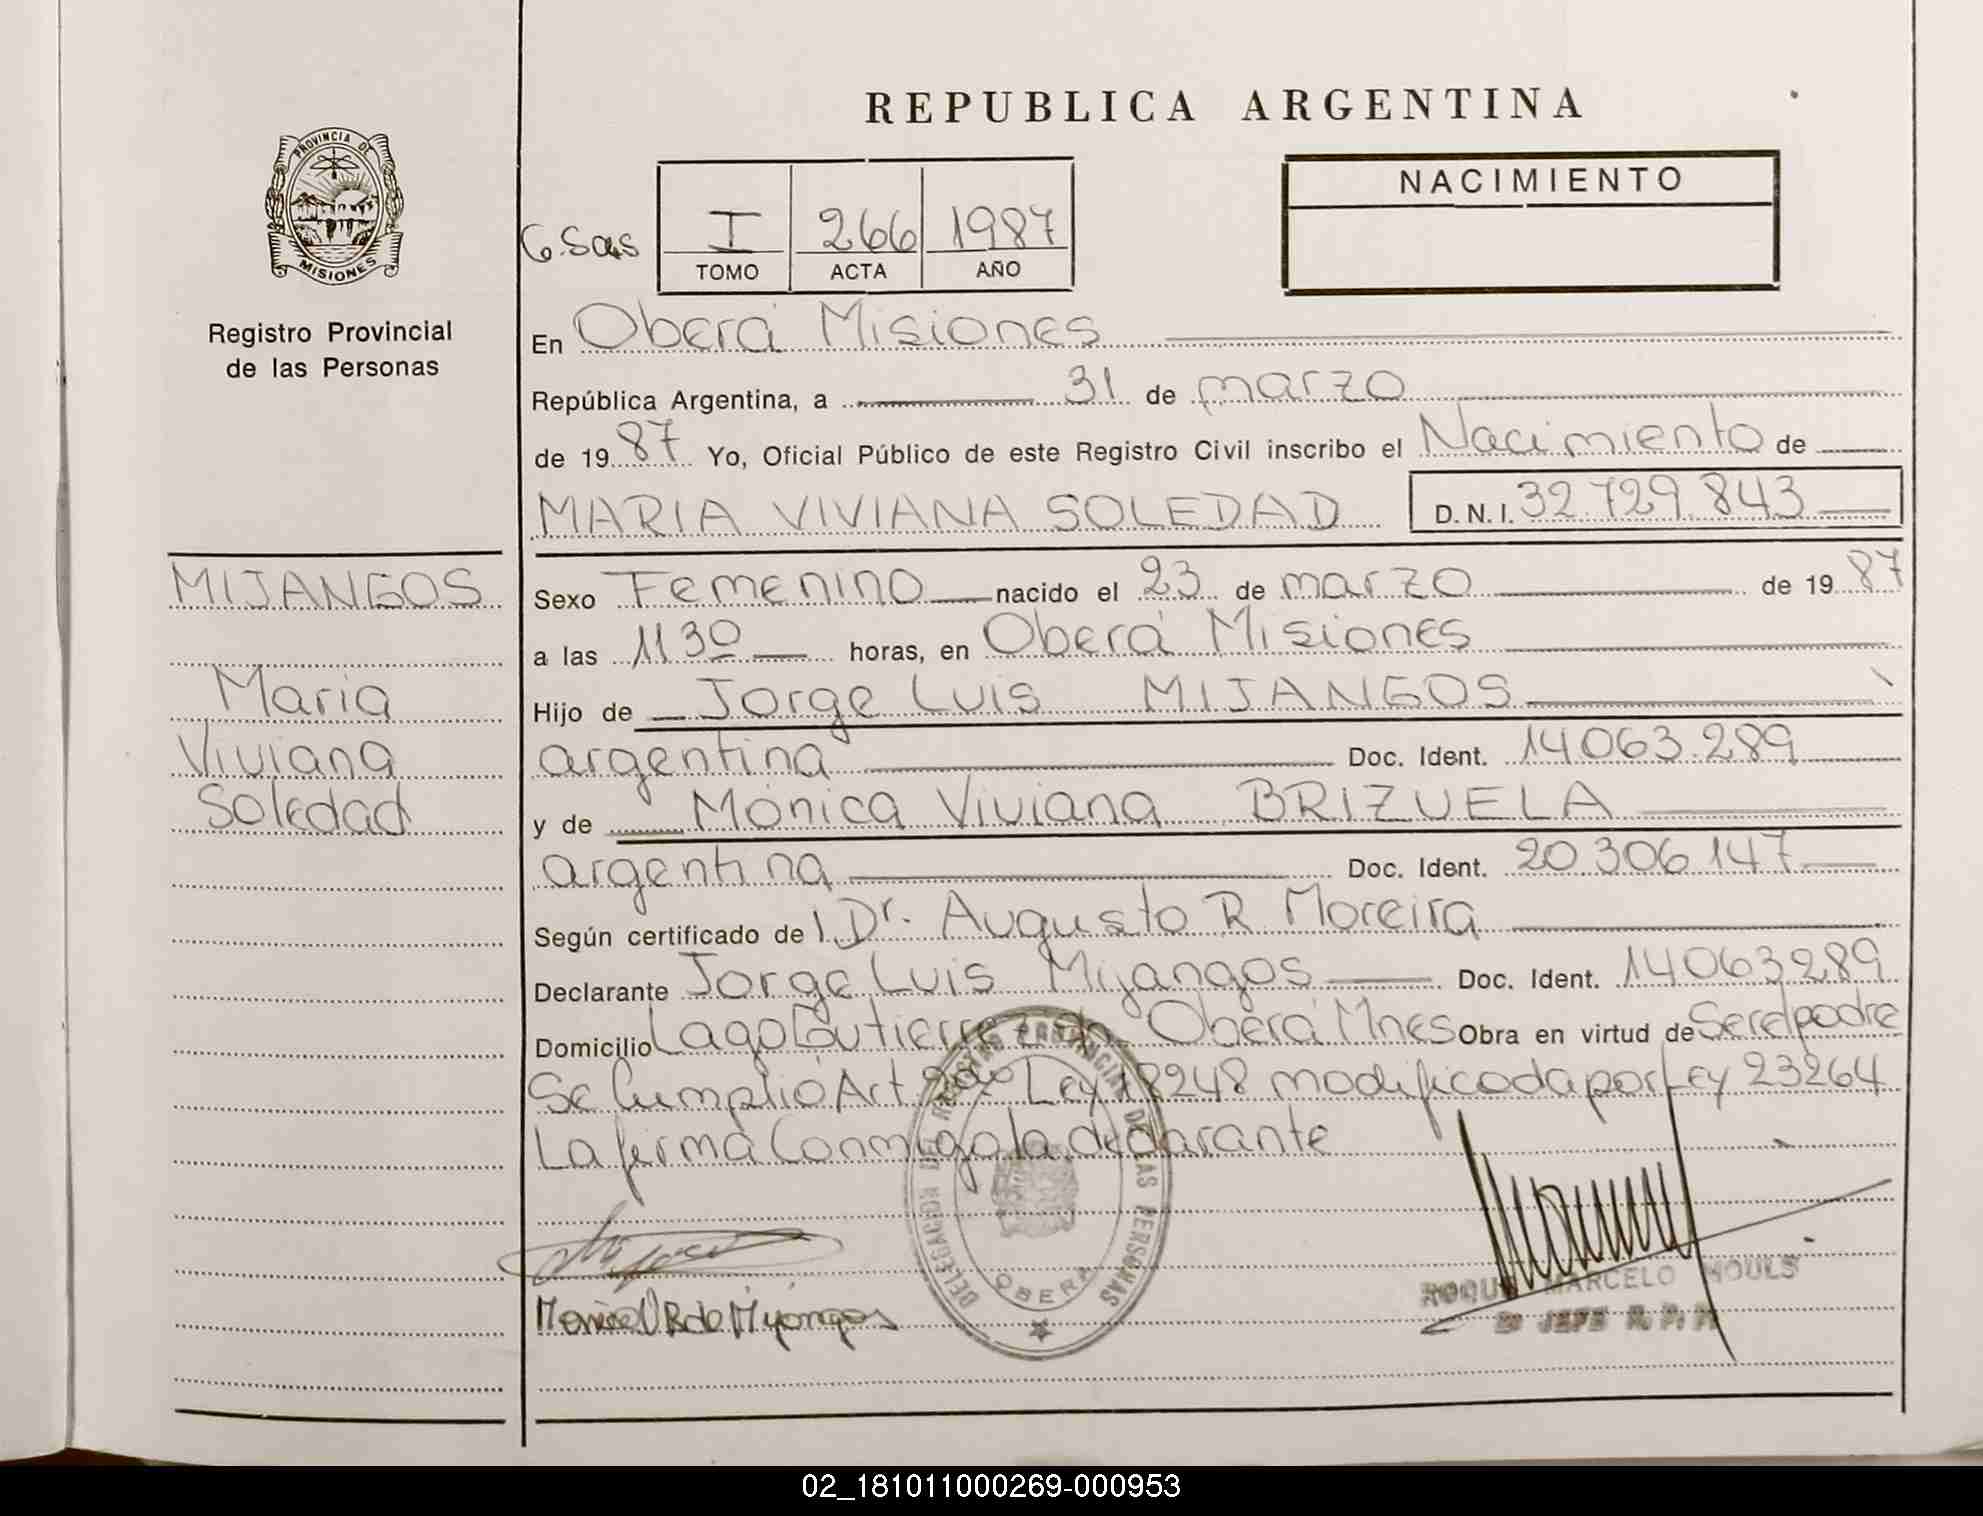 REPUBLICA ARGENTINA
PROVINCIA DE
MISIONES
Registro Provincial
de las Personas
I 266 1987
TOMO ACTA AÑO
NACIMIENTO
En Oberá Misiones
República Argentina, a 31 de marzo
de 1987 Yo, Oficial Público de este Registro Civil inscribo el Nacimiento de
MARIA VIVIANA SOLEDAD D.N.I. 32.729.843
MIJANGOS
Maria
Viviana
Soledad
Sexo Femenino nacido el 23 de marzo de 1987
a las 11 30 horas, en Oberá Misiones
Hijo de Jorge Luis MIJANGOS
argentina Doc. Ident. 14.063.289
y de Mónica Viviana BRIZUELA
argentina Doc. Ident. 20.306.147
Según certificado de l Dr. Augusto R. Moreira
Declarante Jorge Luis Mijangos Doc. Ident. 14.063.289
Domicilio Lago Gutierrez Oberá Mnes Obra en virtud de Ser el padre
Se Cumplió Art. 2do Ley 18248 modificada por Ley 23264
La firma Conmigo la declarante
DELEGACION DEL REGISTRO PROVINCIAL DE LAS PERSONAS
OBERA
ROQUE MARCELO MOULS
JEFE R. P. P.
02_181011000269-000953